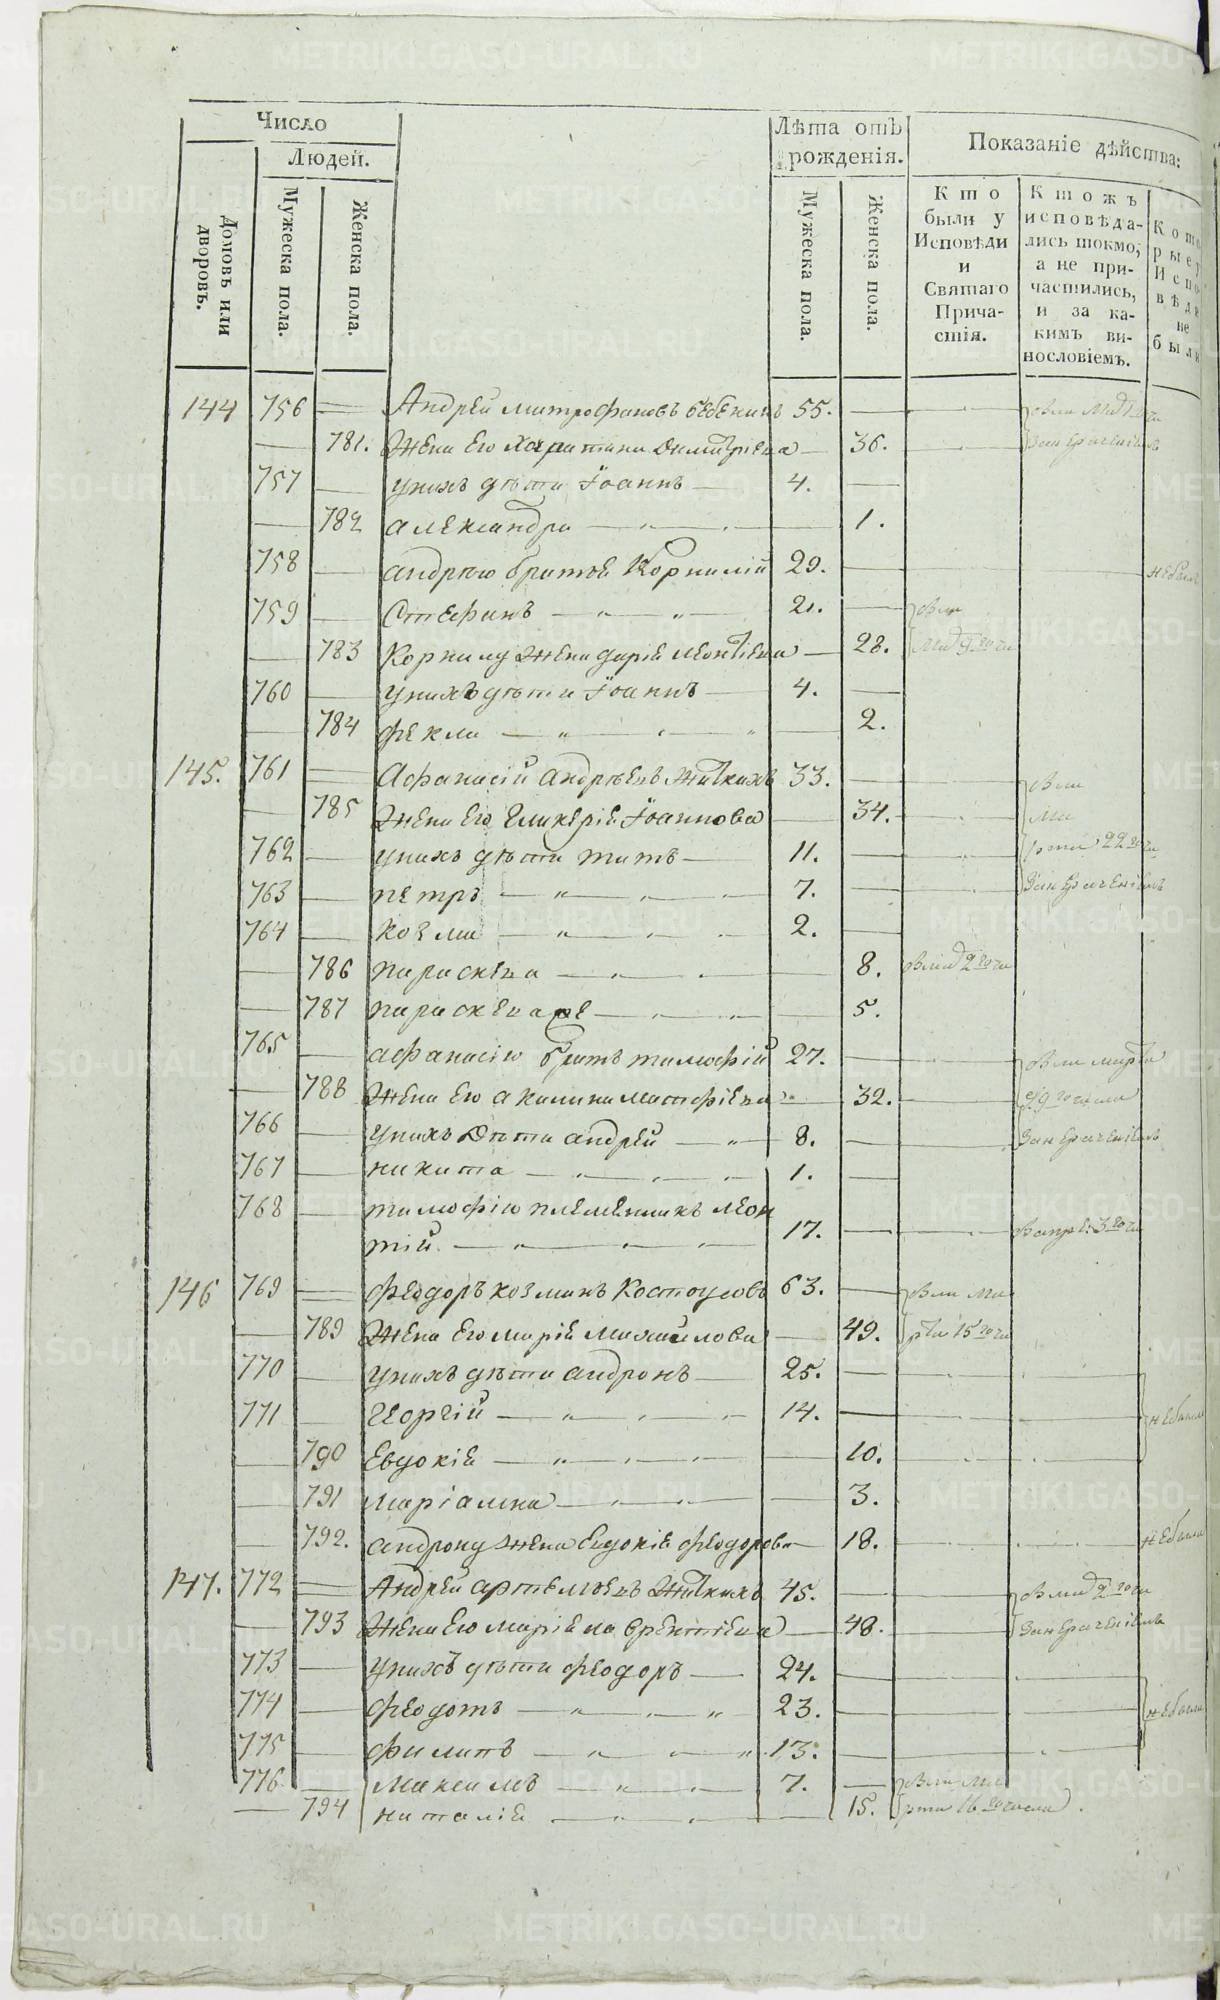 Число
Людей.
Домовъ или дворовъ.
Мужеска пола.
Женска пола.
Лѣта отъ рожденія.
Мужеска пола.
Женска пола.
Показаніе дѣйства:
Кто были у Исповѣди и Святаго Причастія.
Ктожъ исповѣдались токмо, а не причастились, и за какимъ винословіемъ.
Которые у Исповѣди не были
144 756 Андрей Митрофановъ 55.
781. Жена Его Харитина Димитріева 36.
757 у нихъ дѣти Іоаннъ 4.
782 Александра 1.
758 Андрею братья Корнилій 29. не были
759 Стефанъ 21.
783 Корнилу жена Дарія Леонтіева 28.
760 у нихъ дѣти Іоаннъ 4.
784 Фекла 2.
145. 761 Афанасій Андрѣевъ Житкихъ 33.
785 Жена Его Гликерія Іоаннова 34.
762 у нихъ дѣти Титъ 11.
763 Петръ 7.
764 Козма 2.
786 Параскева 8.
787 Параскева же 5.
765 Афанасію братъ Тимофій 27.
788 Жена Его Акилина Матфіева 32.
766 у нихъ Дѣти Андрей 8.
767 Никита 1.
768 Тимофію племенникъ Леон
тій 17.
146 769 Феодоръ Козминъ Костоусовъ 63.
789 Жена Его Марія Михайлова 49.
770 у нихъ дѣти Андронъ 25.
771 Георгій 14. не были
790 Евдокія 10.
791 Маріамна 3.
792. Андрону жена Евдокія Феодорова 18. не были
147. 772 Андрей Артемьевъ Житкихъ 45.
793 Жена Его Марія Лаврентіева 48.
773 у нихъ дѣти Феодоръ 24.
774 Феодотъ 23. не были
775 Филипъ 13.
776 Максимъ 7.
794 Наталія 15.
METRIKI.GASO-URAL.RU